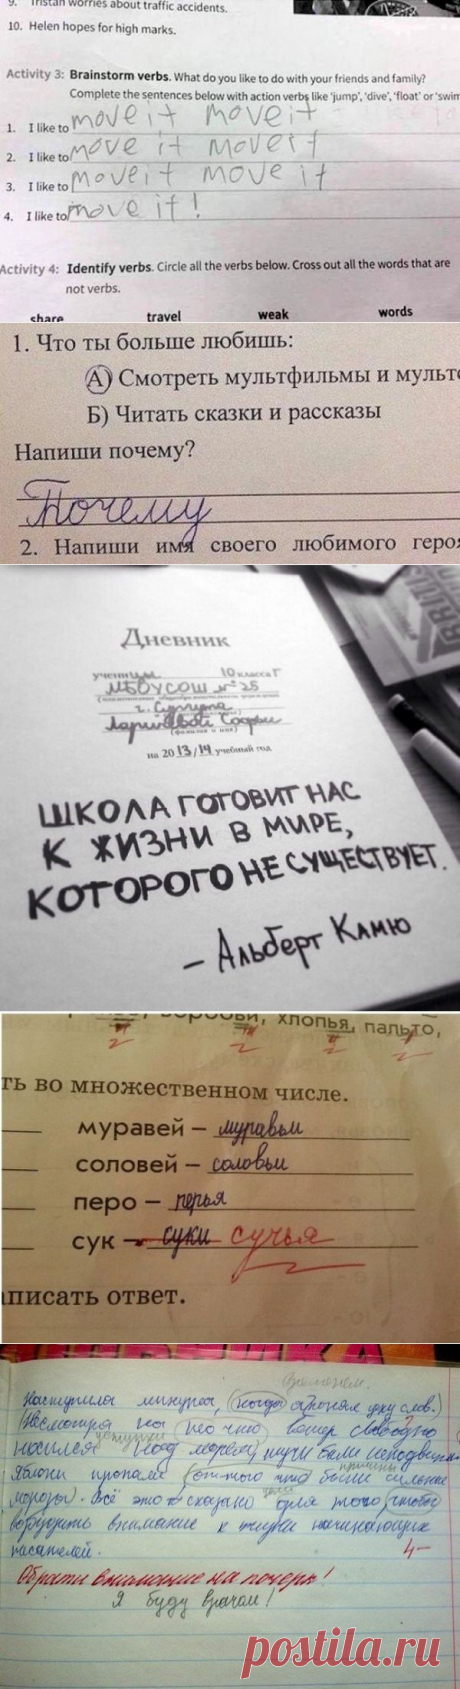 9. Tristan worries about traffic accidents.
10. Helen hopes for high marks.
Activity 3: Brainstorm verbs. What do you like to do with your friends and family?
Complete the sentences below with action verbs like 'jump', 'dive', 'float' or 'swim
1. I like to move it move it
2. I like to move it move it
3. I like to move it move it
4. I like to move it!
Activity 4: Identify verbs. Circle all the verbs below. Cross out all the words that are
not verbs.
share travel weak words
1. Что ты больше любишь:
А) Смотреть мультфильмы и мульт
Б) Читать сказки и рассказы
Напиши почему?
Почему
2. Напиши имя своего любимого геро
Дневник
ученицы 10 класса Г
МБОУСОШ №25
г. Сургута
Софьи
(фамилия и имя)
на 2013/14 учебный год
ШКОЛА ГОТОВИТ НАС
К ЖИЗНИ В МИРЕ,
КОТОРОГО НЕ СУЩЕСТВУЕТ.
– Альберт Камю
хлопья, пальто,
ть во множественном числе.
муравей – муравьи
соловей – соловьи
перо – перья
сук – суки сучья
писать ответ.
Наступила минута, (когда)
носился над морем, тучи были неподвижн
Яблони пропали были сильные
морозы). Всё это сказано для того чтобы
внимание к начинающих
писателей. 4-
Обрати внимание на почерк!
Я буду врачом!
postila.ru